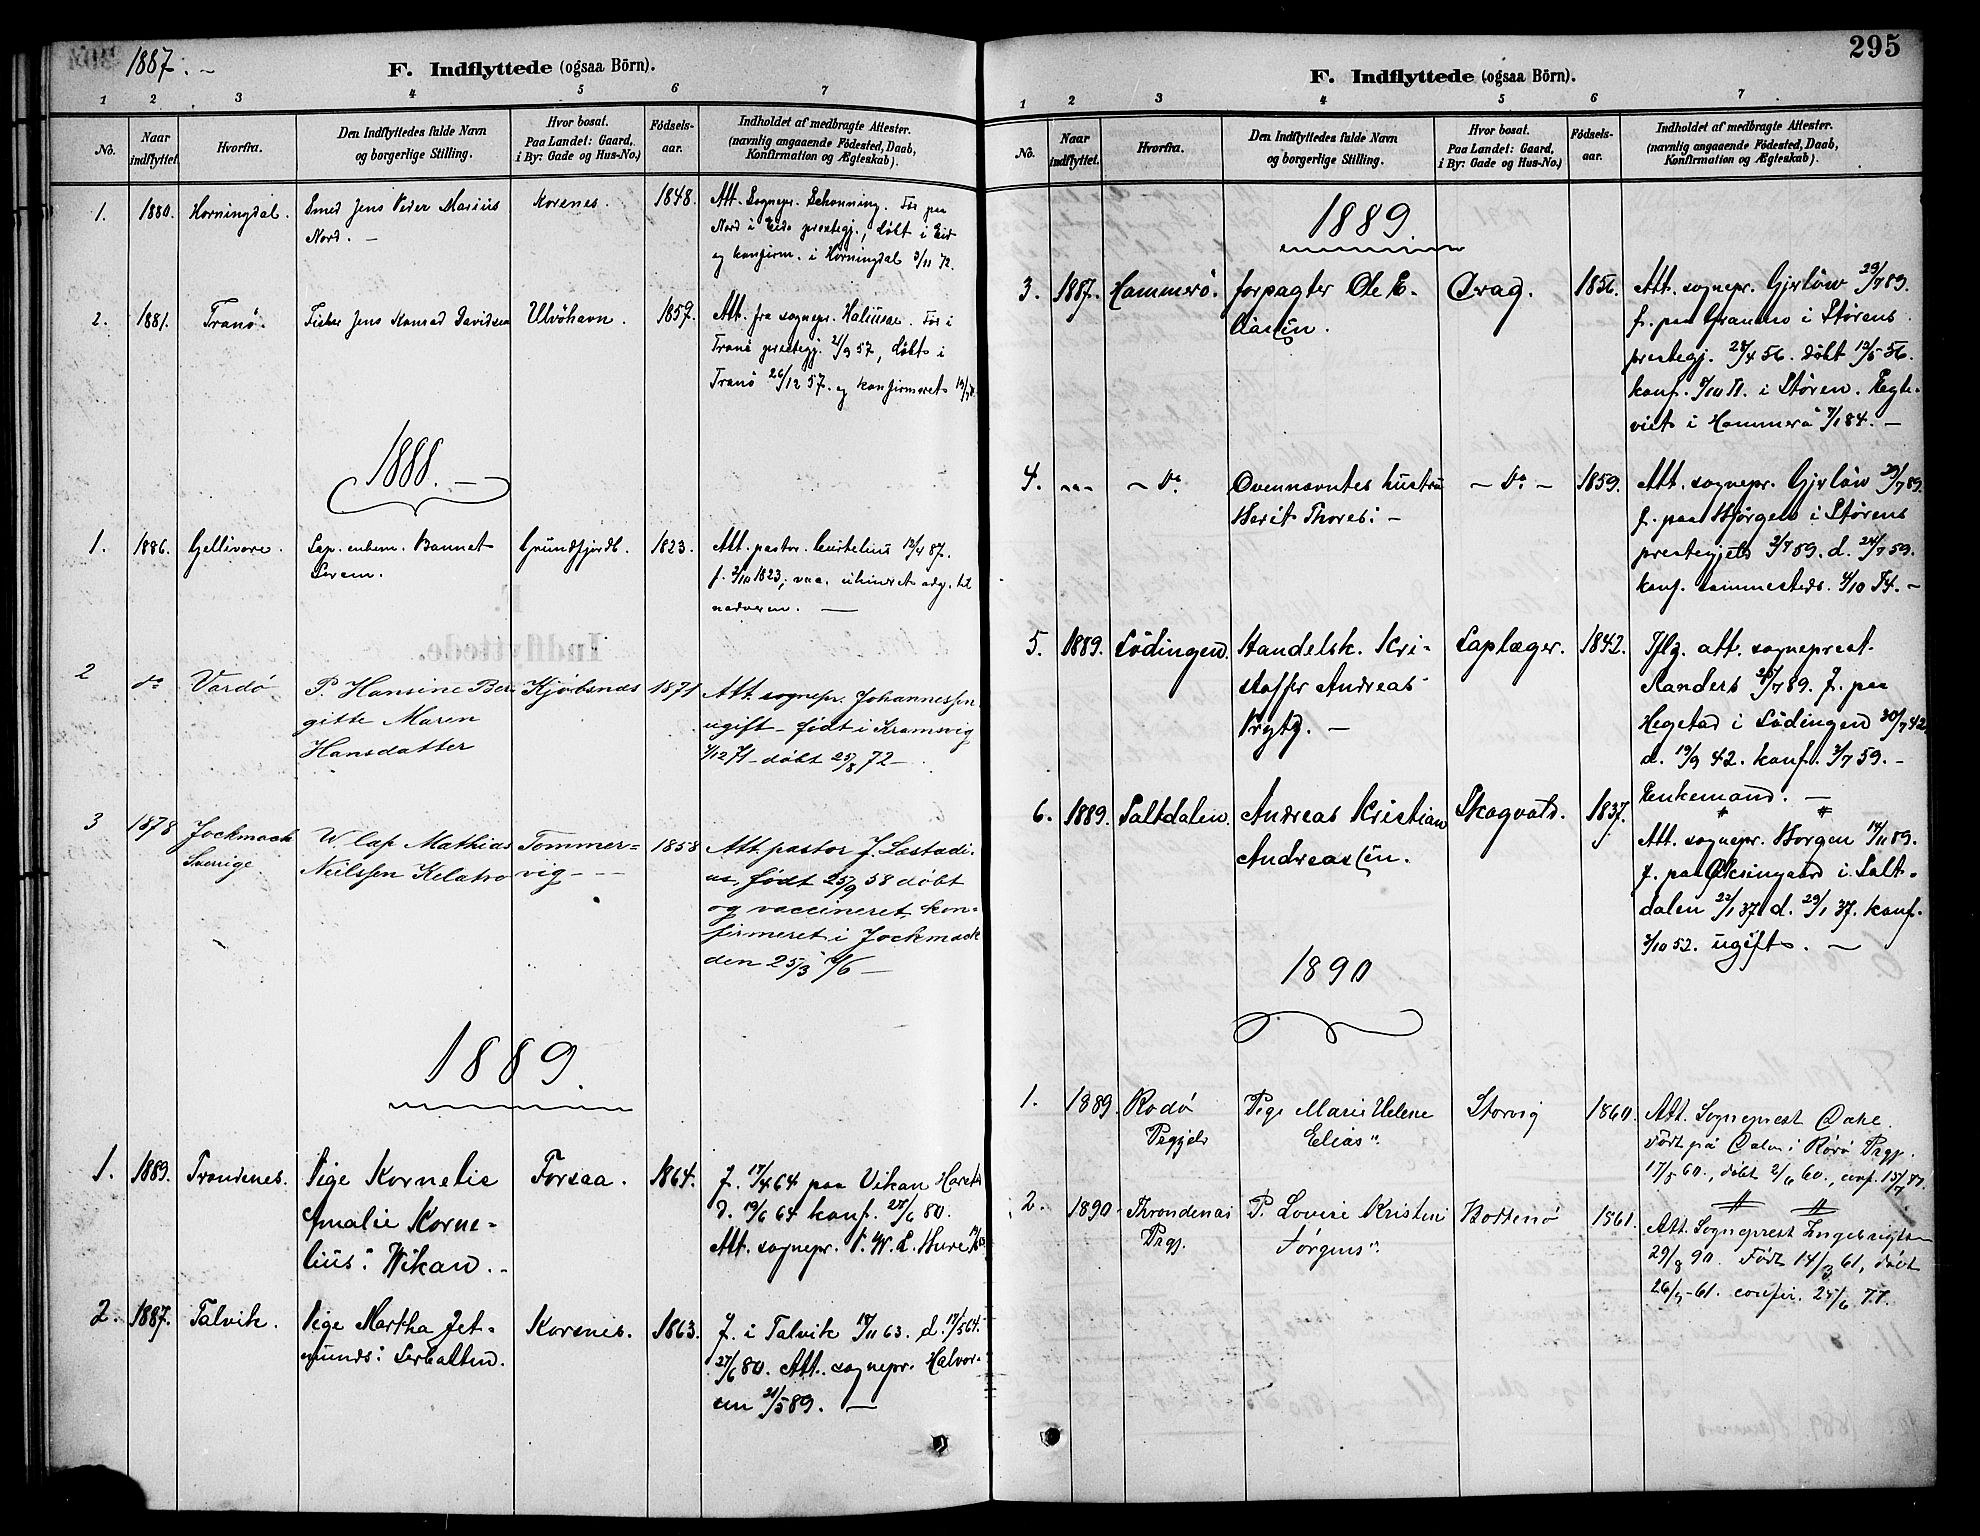 1887. –
F. Indflyttede (ogsaa Börn).
1 2 3 4 5 6 7
No.
Naar indflyttet.
Hvorfra.
Den Indflyttedes fulde Navn og borgerlige Stilling.
Hvor bosat. Paa Landet: Gaard, i By: Gade og Hus-No.)
Födsels-aar.
Indholdet af medbragte Attester. (navnlig angaaende Födested, Daab, Konfirmation og Ægteskab).
1. 1880. Horningdal. Smed Jens Peder Marius Korenes. 1848. Att. Sognepr. Schonning. Föd paa
Nord. – Nord i Eids prestegj., döbt i Eid
og konfirm. i Horningdal 3/11 72.
2. 1881. Tranö. Fisker Jens Konrad Davidsen Ulvöhavn. 1857. Att. fra sognepr. Född i
Tranö prestegj. 2/9 57, döbt i
Tranö 26/12 57. og konfirmeret
1888. –
1. 1886. Gellivore. Lap. enkem. Bannet Grundfjordb. 1823. Att. pastor. 12/4 87.
f. 2/10 1823; vaa. uhindret adg. til
nadveren. —
2 do Vardö P. Hansine Ber Kjöbsnes 1871 Att. sognepr. Johannessen
gitte Maren ugift – födt i Kramsvig
Hansdatter 4/12 71 – döbt 25/8 72 –
3 1878 Jockmock Lap Mathias Tommer= 1858 Att. pastor J. Læstadi-
Sverige Neilssen vig – – us, födt 25/9 58 döbt
og vaccineret, kon-
firmeret i Jockmock
den 25/3 –
1889.
1. 1889. Trondenes. Pige Kornelie Forsaa. 1864. f. 17/4 64 paa Vikan
Amalie Korne- d. 19/6 64 konf. 28/6 80.
lius: Wikan. – Att. sognepr.
2. 1887. Talvik. Pige Martha Jet- Korsnes. 1863. f. i Talvik 18/11 63. d. 17/5 64.
munds: 27/6 80. Att. sognepr. Halvor-
sen 21/5 89. —
295
F. Indflyttede (ogsaa Börn).
1 2 3 4 5 6 7
No.
Naar indflyttet.
Hvorfra.
Den Indflyttedes fulde Navn og borgerlige Stilling.
Hvor bosat. Paa Landet: Gaard, i By: Gade og Hus-No.)
Födsels-aar.
Indholdet af medbragte Attester. (navnlig angaaende Födested, Daab, Konfirmation og Ægteskab).
1889.
3. 1887. Hammerö. forpagter Ole E. Drag. 1856. Att. sognepr. Gjerlöw 29/7 89.
f. paa i Störens
prestegj. 28/4 56. döbt 12/5 56.
konf. i Stören. Egte-
viet i Hammerö 7/1 84. –
4. – do Ovennevntes hustru – do – 1859. Att. sognepr. Gjerlöw 29/7 89.
Berit Thores: – f. paa Björgen i Störens
prestegjeld 2/7 59. d. 24/7 59.
konf. sammesteds. 4/10 74. –
5. 1889. Lödingen. Handelsk. Kri- Laplæger. 1842. Iflg. att. sogneprest.
stoffer Andreas Sanders 26/7 89. f. paa
Prytz. – Hegstad i Lödingen 30/7 42
d. 19/9 42. konf. 3/7 59. –
Enkemand. —
6. 1889. Saltdalen. Andreas Kristian Skogvold. 1837. Att. sognepr. Borgen 14/11 89.
Andreassen. f. paa Öksingaard i Salt-
dalen 22/1 37. d. 29/1 37. konf.
3/10 52. ugift. —
1890
1. 1889. Rödö Pige Marie Helene Storvig 1860. Att. Sogneprest Dahl.
Prgjeld Elias" Födt på i Rödö Prgj.
17/5 60., döbt 2/6 60., conf. 15/7 77.
2. 1890 Throndenes P. Lovise Kristine Bottenö 1861. Att. Sogneprest Engebrigtsen
Prgj. Jörgens" 29/8 90. Födt 14/3 61, döbt
26/5 – 61. confir. 25/6 77.